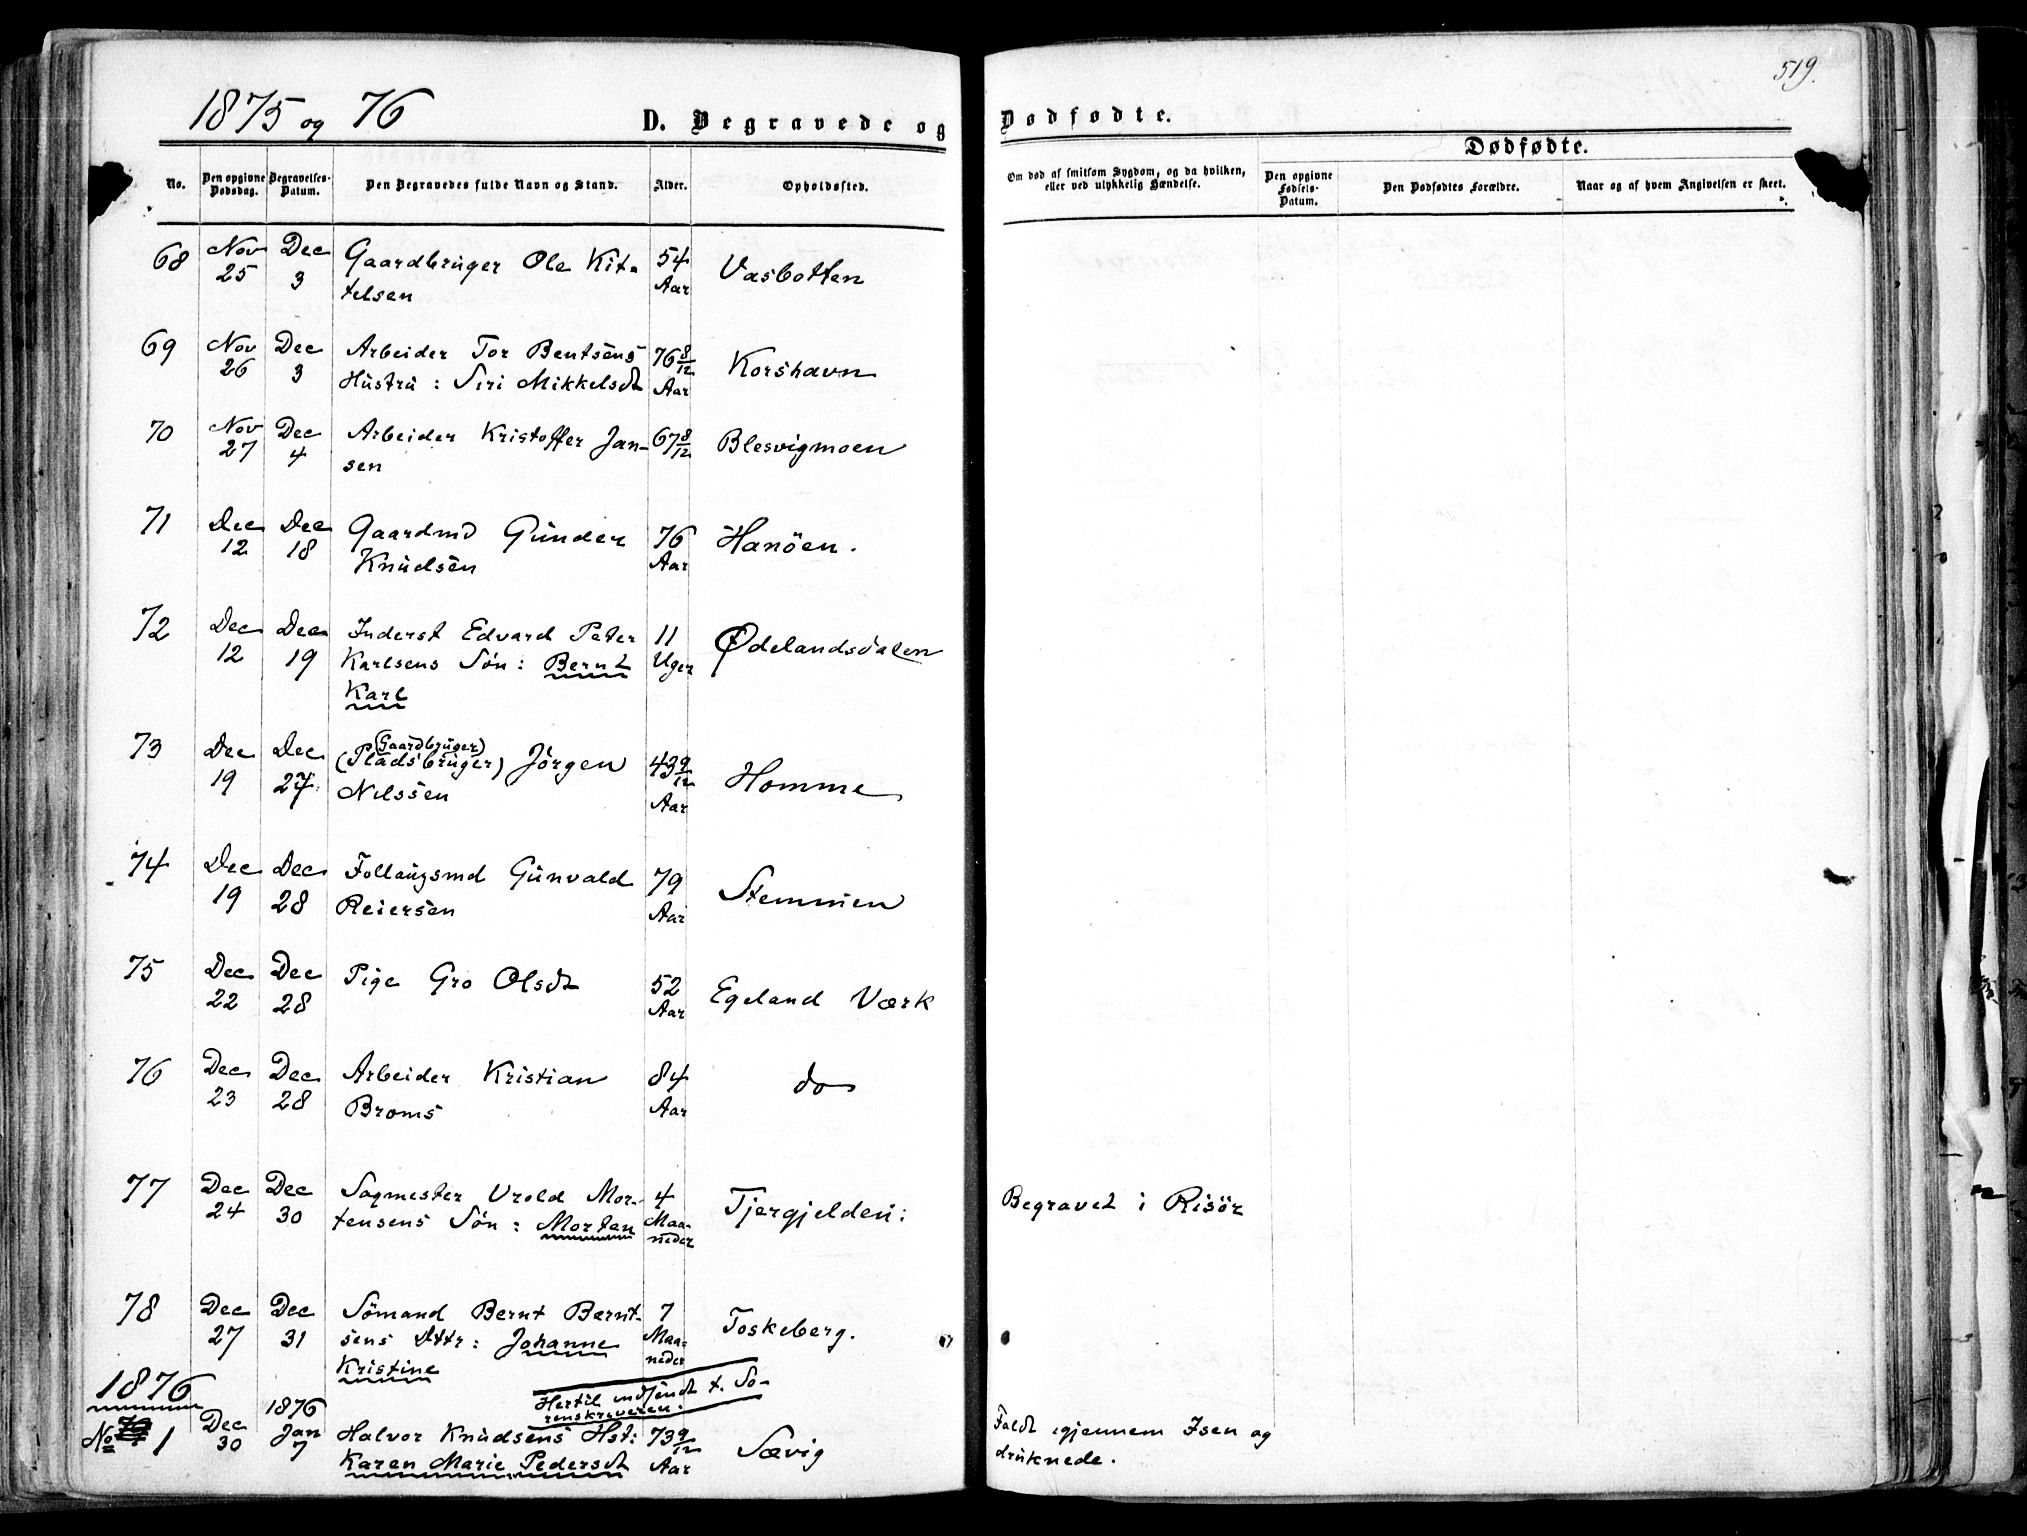 519.
1875 og 76
D. Begravede og Dødfødte.
No.
Den opgivne Dødsdag.
Begravelses-Datum.
Den Begravedes fulde Navn og Stand.
Alder.
Opholdssted.
Om død af smitsom Sygdom, og da hvilken, eller ved ulykkelig Hændelse.
Dødfødte.
Den opgivne Fødsels-Datum.
Den Dødfødtes Forældre.
Naar og af hvem Angivelsen er skeet.
68 Nov 25 Dec 3 Gaardbruger Ole Kit-
telsen 54 Aar Vasbotten
69 Nov 26 Dec 3 Arbeider Tor Bentsens
Hustru : Siri Mikkelsdt 76 8/12 Aar Korshavn
70 Nov 27 Dec 4 Arbeider Kristoffer Jan-
sen 67 8/12 Blesvigmoen
71 Dec 12 Dec 18 Gaardmd Gunder
Knudsen 76 Aar Hanöen.
72 Dec 12 Dec 19 Inderst Edvard Peter
Karlsens Sön : Bernt
Karl 11 Uger Ødelandsdalen
73 Dec 19 Dec 27 (Gaardbruger)
(Pladsbruger) Jörgen
Nilssen 43 9/12 Aar Homme
74 Dec 19 Dec 28 Follaugsmd Gunvald
Reiersen 79 Aar Stemmen
75 Dec 22 Dec 28 Pige Gro Olsdt 52 Aar Egeland Værk
76 Dec 23 Dec 28 Arbeider Kristian
Broms 84 Aar do
77 Dec 24 Dec 30 Sagmester Vrold Mor-
tensens Sön : Morten 4 Maaneder Tjergjelden: Begravet i Risör
78 Dec 27 Dec 31 Sömand Bernt Bernt-
sens Dttr : Johanne
Kristine 7 Maaneder Toskeberg.
1876
Hertil indsendt t. So-
renskriveren.
No 1 Dec 30 1876 Jan 7 Halvor Knudsens Hst:
Karen Marie Pedersdt 73 9/12 Aar Sævig Faldt igjennem Isen og
druknede.